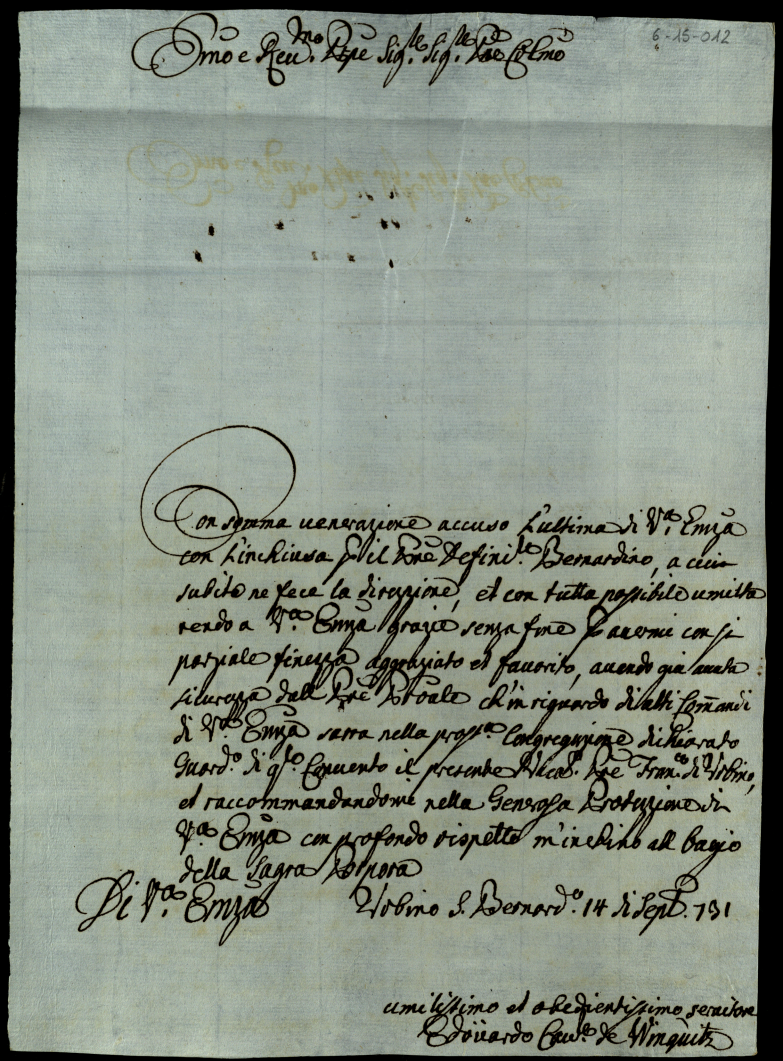 6-15-012
Emo e Reu.mo Pnpe Sig.re Sig.re Pne Colmo
Con somma uenerazione accuso L'ultima di V.a Emza
con L'inchiusa p il Pre Definit.re Bernardino, a cui
subito ne fece la direzione, et con tutta possibile umiltà
rendo a V.a Emza grazie senza fine p auermi con si
parziale finezza aggraziato et fauorito, auendo già auuta
sicurezza dall Pre Prouale ch'in riguardo di alti Comandi
di V.a Emza sarra nella pross.a Congregazione dichiarato
Guard.o di qto Conuento il presente Vicar.o Pre Fran.co di Vrbino,
et raccommandandomi nella Generosa Protezzione di
V.a Emza con profondo rispetto m'inchino all bagio
della Sagra Porpora
Di V.a Emza Vrbino S. Bernard.o 14 di Sept. 731
umilissimo et obedientissimo seruitore
Edoüardo Cau.re de Winquitz